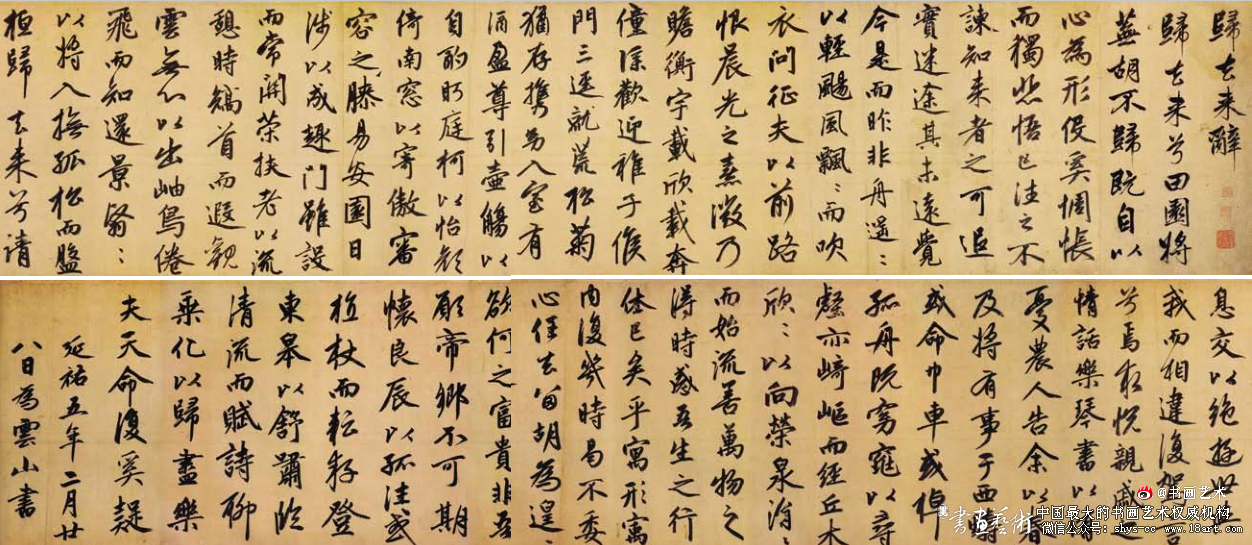 歸去来辭
歸去来兮田園將
蕪胡不歸既自以
心為形役奚惆悵
而獨悲悟已往之不
諫知来者之可追
實迷途其未遠覺
今是而昨非舟遥〻
以輕颺風飄〻而吹
衣問征夫以前路
恨晨光之熹微乃
瞻衡宇載欣載奔
僮僕歡迎稚子候
門三逕就荒松菊
猶存攜幼入室有
酒盈尊引壺觴以
自酌眄庭柯以怡顔
倚南窓以寄傲審
容之膝易安園日
涉以成趣門雖設
而常關策扶老以流
憩時矯首而遐觀
雲無心以出岫鳥倦
飛而知還景翳〻
以將入撫孤松而盤
桓歸去来兮請
息交以絶遊世
我而相違復駕言
兮焉求悦親戚之
情話樂琴書以
憂農人告余以春
及將有事于西疇
或命巾車或棹
孤舟既窈窕以尋
壑亦崎嶇而經丘木
欣〻以向榮泉涓〻
而始流善萬物之
得時感吾生之行
休已矣乎寓形寓
内復幾時曷不委
心任去留胡為遑〻
欲何之富貴非吾
願帝鄉不可期
懷良辰以孤往或
植杖而耘耔登
東皋以舒嘯臨
清流而賦詩聊
乘化以歸盡樂
夫天命復奚疑
延祐五年二月廿
八日為雲山書
@书画艺术
書畫藝術 中国最大的书画艺术权威机构
微信公众号: shys-cc www.18art.com